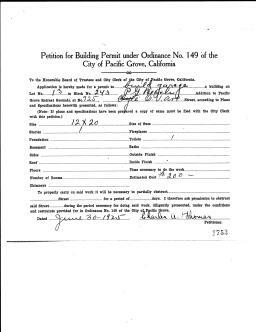 Petition for Building Permit under Ordinance No. 149 of the
City of Pacific Grove, California
To the Honorable Board of Trustees and City Clerk of the City of Pacific Grove, California.
Application is hereby made for a permit to build garage a building on
Lot No. 13 in Block No. 243 Addition to Pacific
Grove Retreat Grounds at No. 725 Street, according to Plans
and Specifications herewith presented, as follows:
(Note: If plans and specifications have been prepared a copy of same must be filed with the City Clerk
with this petition.)
Size 12 X 20 Size of Base
Stories 1 Fireplaces
Foundation Toilets 1
Basement Baths
Sides Outside Finish
Roof Inside Finish
Floors Time necessary to do the work
Number of Rooms Estimated Cost $200 -
Chimneys
To properly carry on said work it will be necessary to partially obstruct
Street for a period of days. I therefore ask permission to obstruct
said Street during the period necessary for doing said work, diligently prosecuted, under the conditions
and restraints provided for in Ordinance No. 149 of the City of Pacific Grove.
Dated June 30-1925 Charles A Thomas
Petitioner.
3753